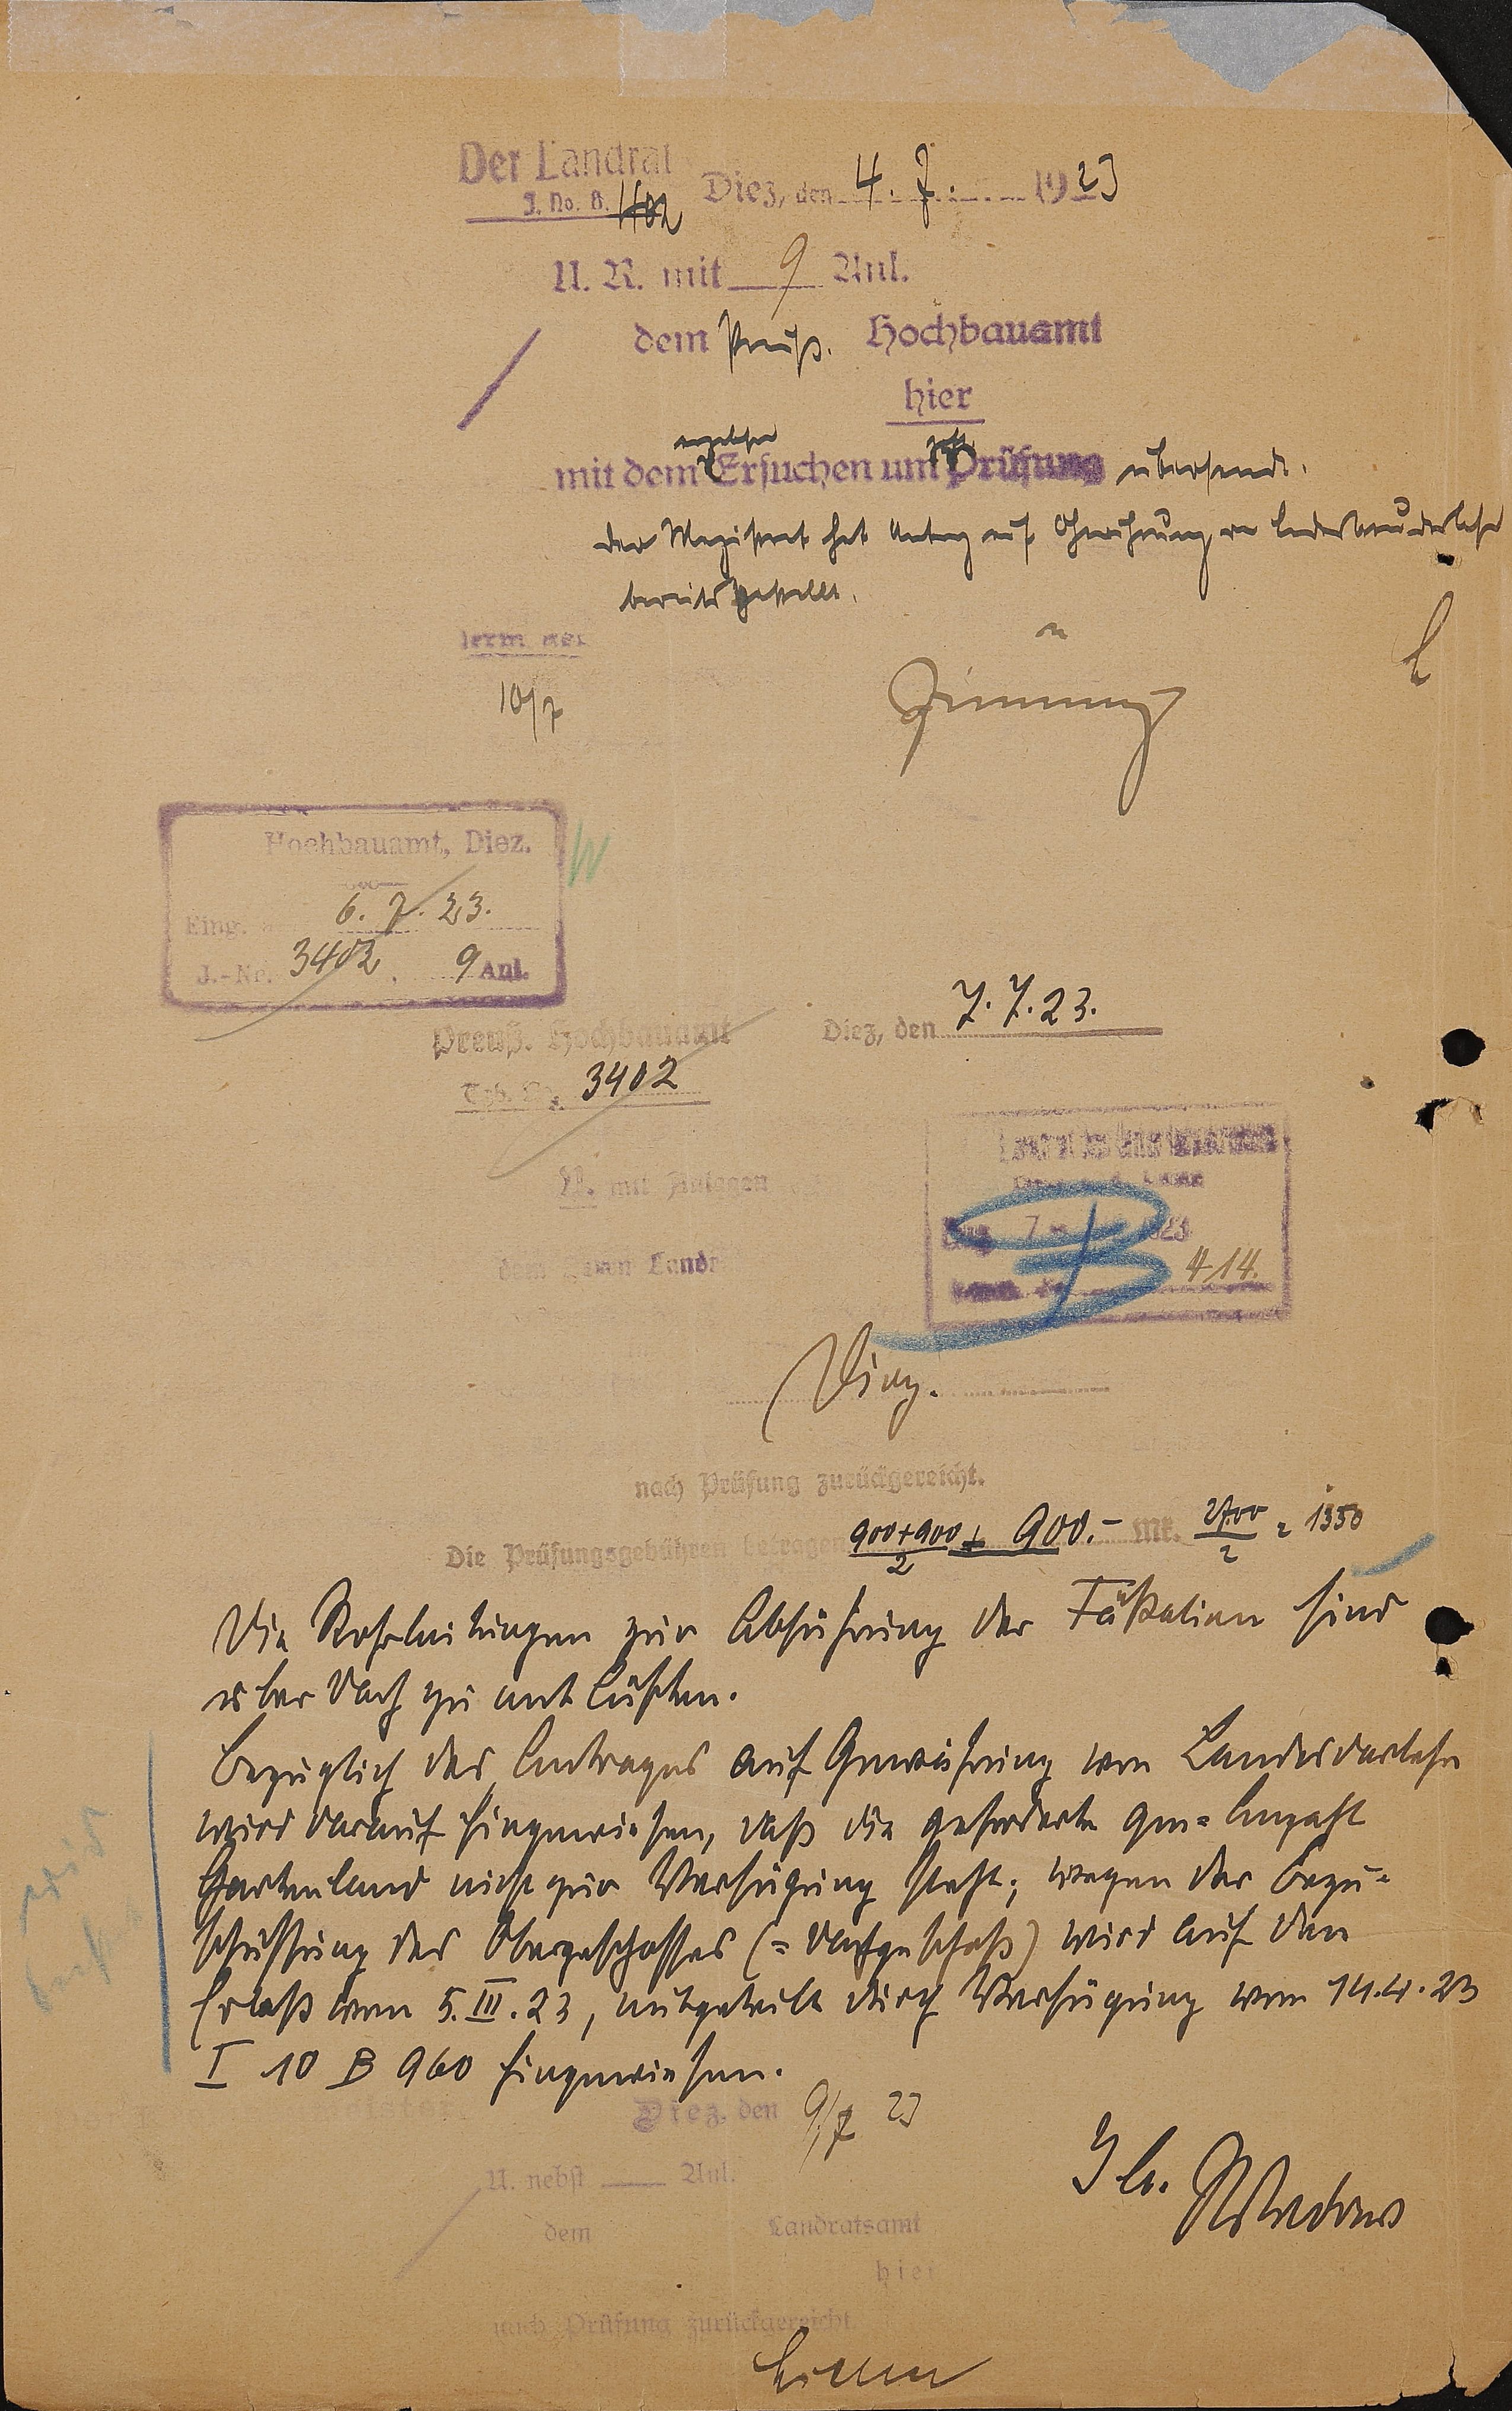 Der Landrat
J. No. B. 1402 Diez, den 4. 7. 1923
U. R. mit 9 Anl.
dem Preuß. Hochbauamt
hier
mit dem Ersuchen um Prüfung übersandt.
Der Magistrat hat Antrag auf Gewährung von Landesbaudarlehn
bereits gestellt.
10/7
Hochbauamt, Diez.
Eing. 6. 7. 23.
J.-Nr. 3402. 9 Anl.
Preuß. Hochbauamt Diez, den 7. 7. 23.
Tgb. Nr. 3402
U. mit Anlagen
dem Herrn Land
7 23
414.
Diez.
nach Prüfung zurückgereicht.
Die Prüfungsgebühren betragen 900+900/2 + 900.- Mk. 2700/2 = 1350
Die Rohrleitungen zur Abführung der Fäkalien sind
über Dach zu entlüften.
Bezüglich des Antrages auf Gewährung von Landesdarlehn
wird darauf hingewiesen, daß die geforderte qm=Anzahl
Gartenland nicht zur Verfügung steht; wegen der Bezu=
schussung des Obergeschosses (= Dachgeschoß) wird auf den
Erlaß vom 5. III. 23, mitgeteilt durch Verfügung vom 14.4.23
I 10 B 960 hingewiesen.
Diez, den 9/7 23
U. nebst Anl.
dem Landratsamt
hier
nach Prüfung zurückgereicht.